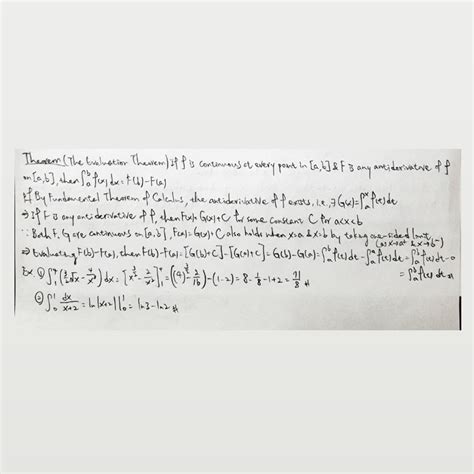 Theorem (The Evaluation Theorem) If f is continuous at every point in [a,b] & F is any antiderivative of f
on [a,b], then ∫_a^b f(x) dx = F(b)-F(a)
pf By Fundamental Theorem of Calculus, the antiderivative of f exists, i.e., ∃ G(x) = ∫_a^x f(t) dt
⇒ If F is any antiderivative of f, then F(x) = G(x)+C for some constant C for a<x<b
∵ Both F, G are continuous on [a,b], F(x) = G(x)+C also holds when x=a & x=b by taking one-sided limit
(as x→a+ & x→b-)
⇒ Evaluating F(b)-F(a), then F(b)-F(a) = [G(b)+C]-[G(a)+C] = G(b)-G(a) = ∫_a^b f(t) dt - ∫_a^a f(t) dt = ∫_a^b f(t) dt - 0
= ∫_a^b f(t) dt
Ex. ① ∫_1^4 (3/2 √x - 4/x³) dx = [x^(3/2) + 2/x²]_1^4 = ((4)^(3/2) - 2/16) - (1-2) = 8 - 1/8 - 1 + 2 = 71/8
② ∫_0^1 dx/(x+2) = ln|x+2| |_0^1 = ln3 - ln2